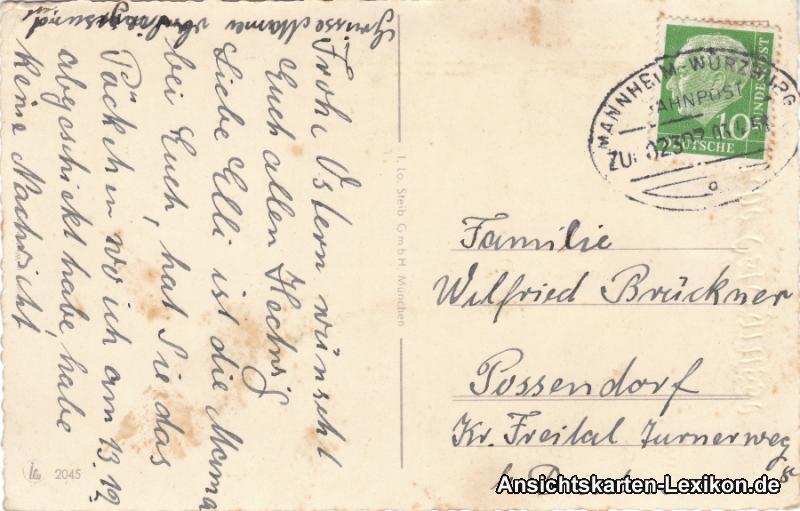 Frohe Ostern wünscht
Euch allen Hedwig
Liebe Elli ist die Mama
bei Euch, hat Sie das
Päckchen wo ich am 13.12
abgeschickt habe, habe
keine Nachricht
Grüsse Mama
1. Lo. Steib GmbH München
2045
MANNHEIM-WÜRZBURG
BAHNPOST
ZUG 02307
10
DEUTSCHE BUNDESPOST
Familie
Wilfried Brückner
Possendorf
Kr. Freital Turnerweg
8
b.
Ansichtskarten-Lexikon.de